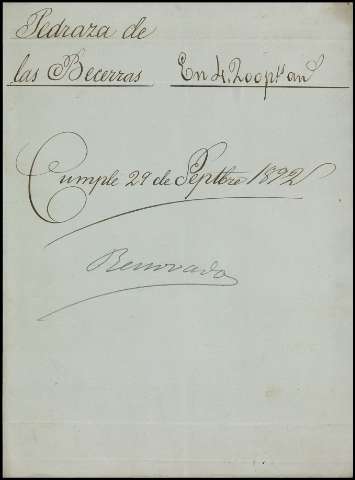 Pedraza de
las Becerras En 4.200 pts. an.
Cumple 29 de Septbre 1892
Renovado